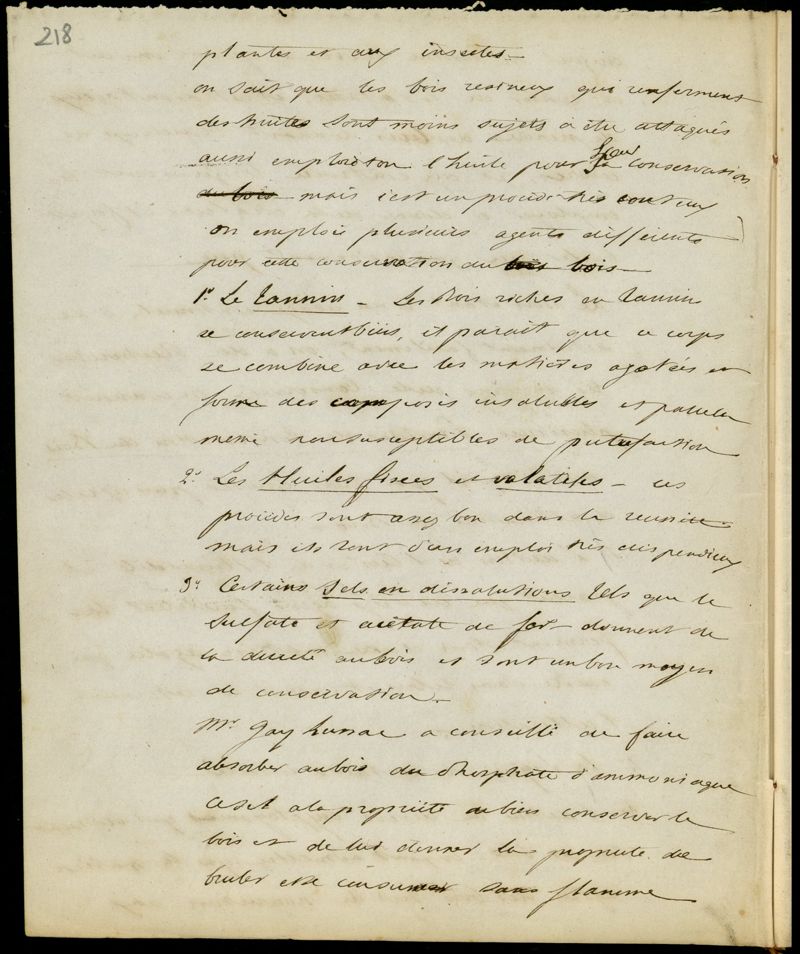 218
plantes et aux insectes —
on sait que les bois resineux qui renferment
des huiles sont moins sujets a être attaqués
aussi emploie ton l'huile pour sa conservation
du bois mais c'est un procédé très couteux
on emploie plusieurs agents différents
pour cette conservation du bois —
1º Le Tannin — Les Bois riches en Tannin
se conservent bien, il parait que ce corps
se combine avec les matières azotées et
forme des composés insolubles et
même non susceptibles de putrefaction
2º Les Huiles fixes et volatiles — ces
procédés sont assez bon dans la
mais ils sont d'un emploi très dispendieux
3º Certains Sels en dissolutions Tels que le
Sulfate et acétate de fer donnent de
la dureté au bois et sont un bon moyen
de conservation —
Mr Gay Lussac a conseillé de faire
absorber au bois du Phosphate d'ammoniaque
ce sel a la propriété de bien conserver le
bois et de lui donner la propriété de
bruler et se consumer sans flamme